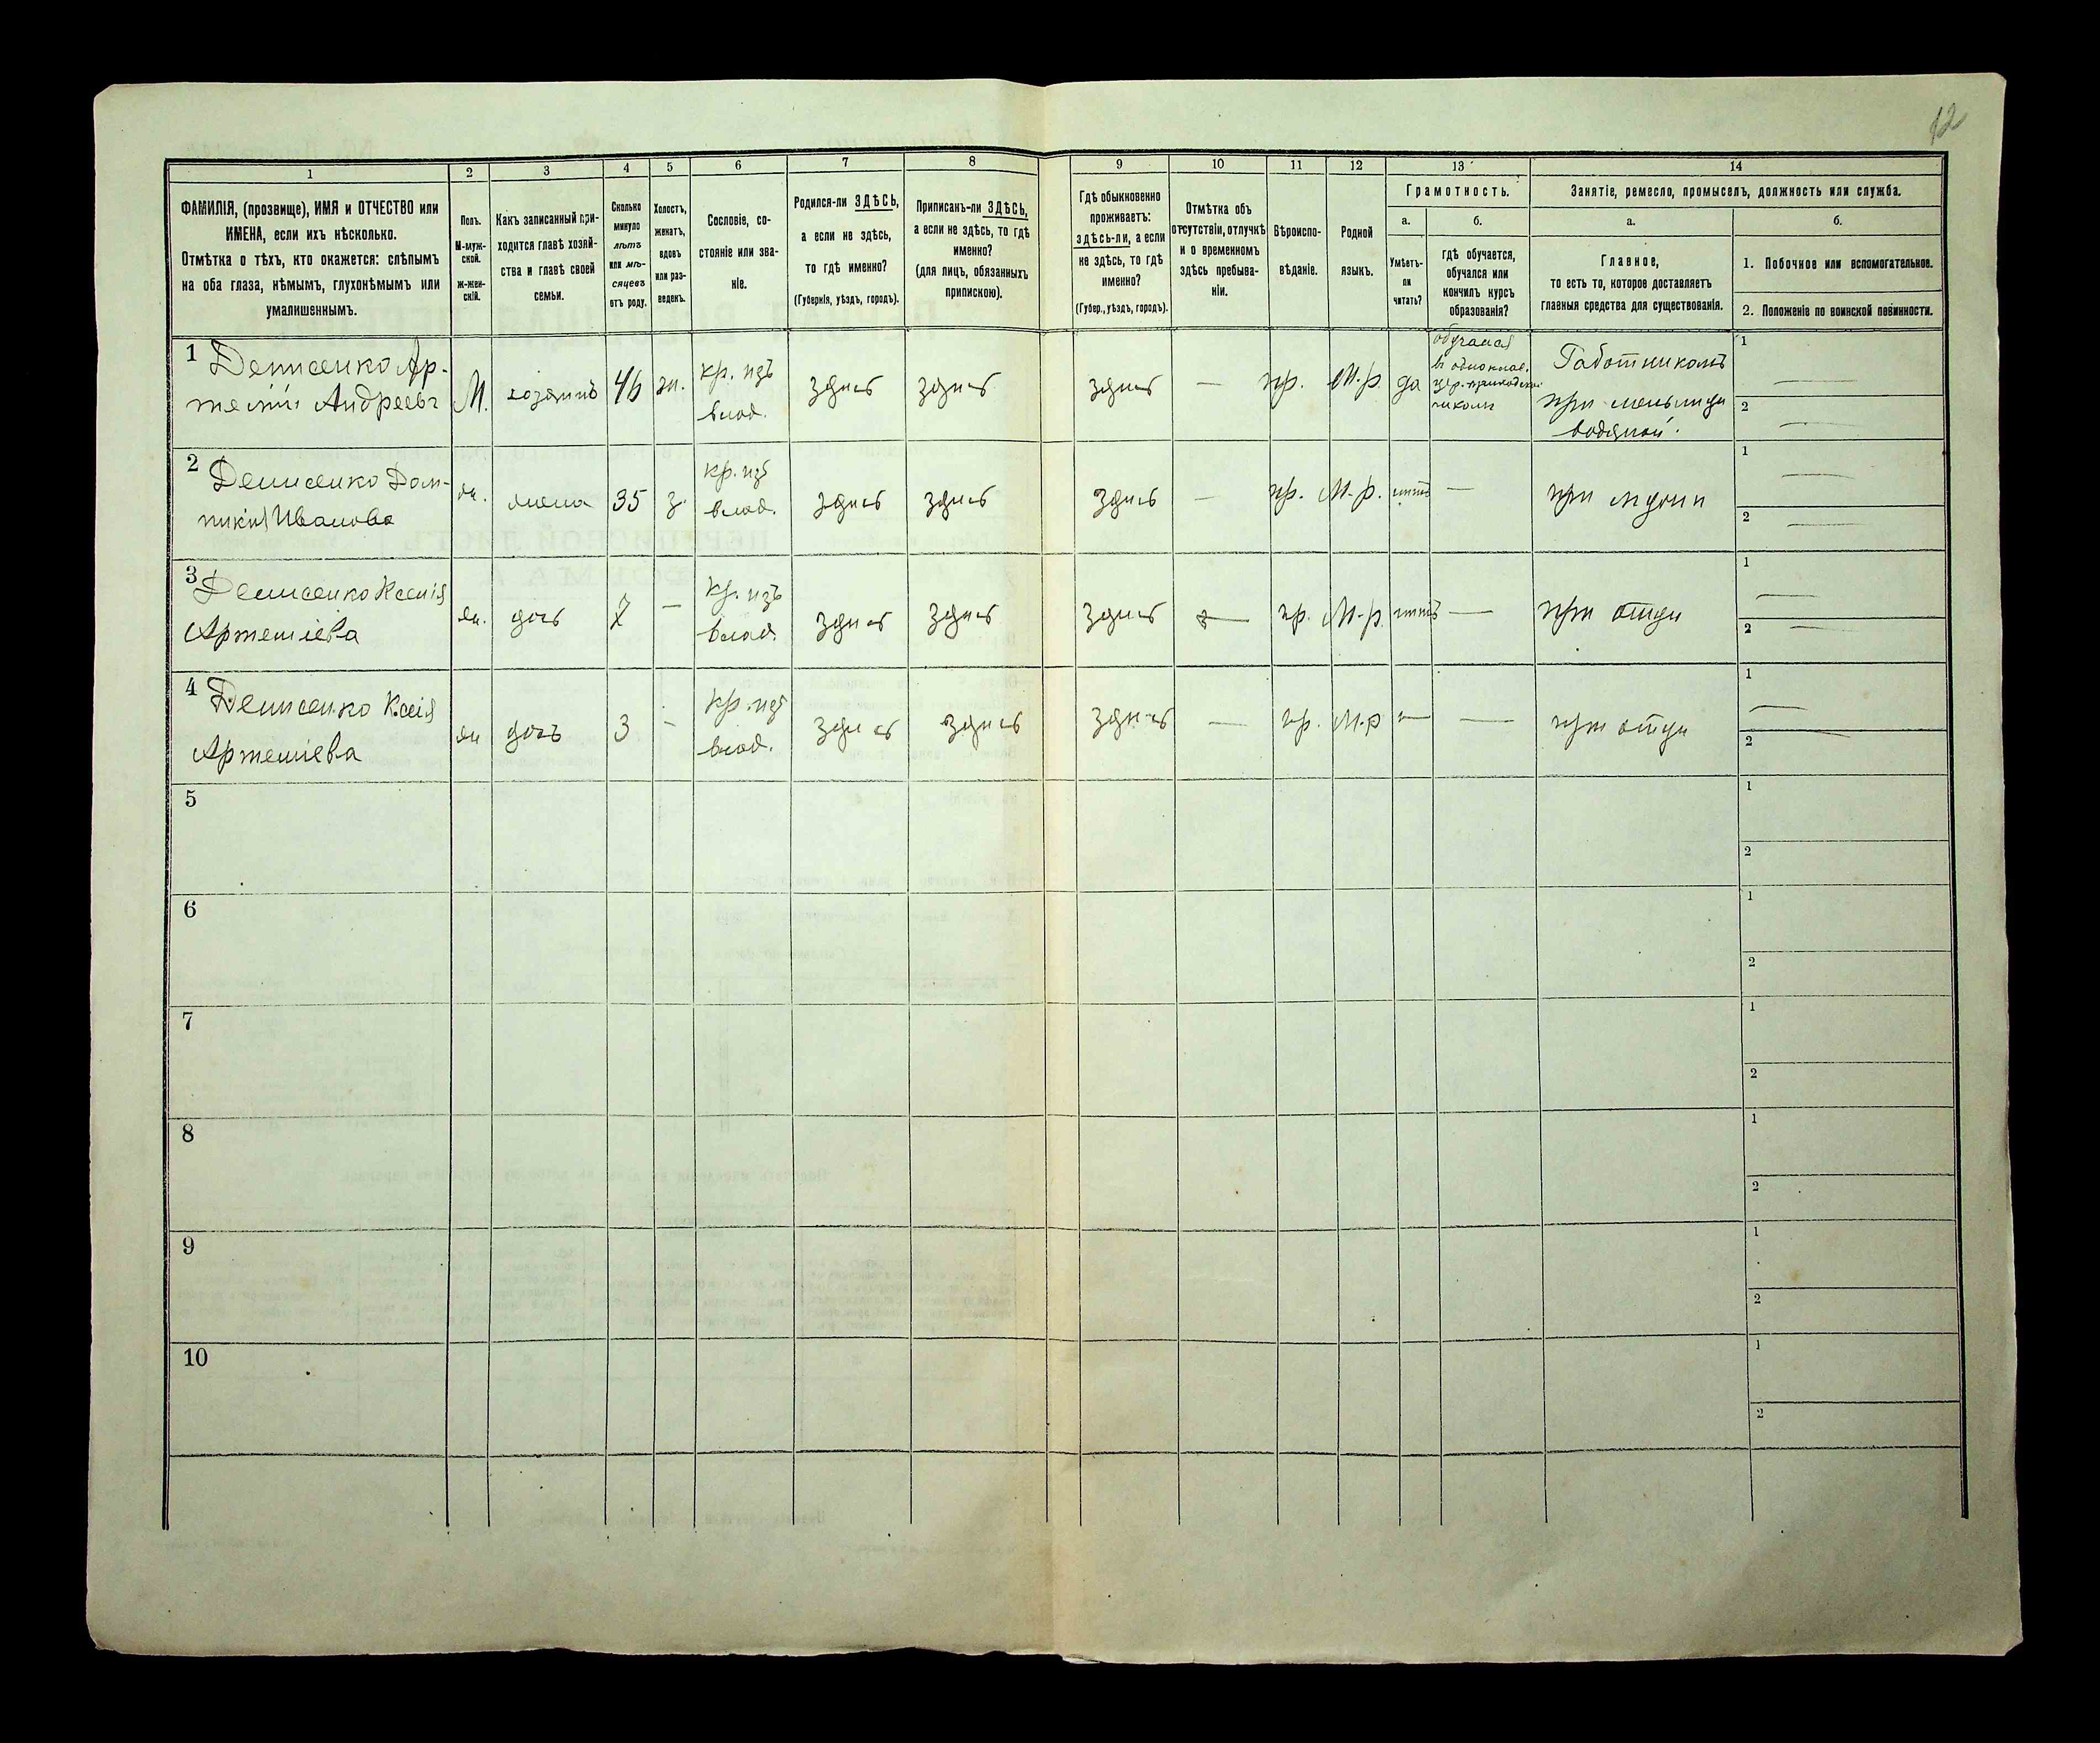 12
1
2
3
4
5
6
7
8
9
10
11
12
13
14
ФАМИЛІЯ, (прозвище), ИМЯ и ОТЧЕСТВО или
ИМЕНА, если ихъ нѣсколько.
Отмѣтка о тѣхъ, кто окажется: слѣпымъ
на оба глаза, нѣмымъ, глухонѣмымъ или
умалишеннымъ.
Полъ.
М-муж-
ской.
ж-жен-
скій.
Какъ записанный при-
ходится главѣ хозяй-
ства и главѣ своей
семьи.
Сколько
минуло
лѣтъ
или мѣ-
сяцевъ
отъ роду.
Холостъ,
женатъ,
вдовъ
или раз-
веденъ.
Сословіе, со-
стояніе или зва-
ніе.
Родился-ли ЗДѢСЬ,
а если не здѣсь,
то гдѣ именно?
(Губернія, уѣздъ, городъ).
Приписанъ-ли ЗДѢСЬ,
а если не здѣсь, то гдѣ
именно?
(для лицъ, обязанныхъ
припискою).
Гдѣ обыкновенно
проживаетъ:
здѣсь-ли, а если
не здѣсь, то гдѣ
именно?
(Губер., уѣздъ, городъ).
Отмѣтка объ
отсутствіи, отлучкѣ
и о временномъ
здѣсь пребыва-
ніи.
Вѣроиспо-
вѣданіе.
Родной
языкъ.
Грамотность.
а.
Умѣетъ-
ли
читать?
б.
гдѣ обучается,
обучался или
кончилъ курсъ
образованія?
Занятіе, ремесло, промыселъ, должность или служба.
а.
Главное,
то есть то, которое доставляетъ
главныя средства для существованія.
б.
1. Побочное или вспомогательное.
2. Положеніе по воинской повинности.
1 Денисенко Ар-
темій Андреевъ
М. хозяинъ 46 ж. кр. изъ
влад.
здѣсь здѣсь здѣсь — пр. М.р. да
обучался
церк.-приходской
школы
Работникомъ
при мельницѣ
водяной.
1 —
2 —
2 Денисенко Дом-
никія Иванова
ж. жена 35 з. кр. изъ
влад.
здѣсь здѣсь здѣсь — пр. М.р. нѣтъ — при мужѣ
1 —
2 —
3 Денисенко Ксенія
Артеміева
ж. дочь 7 — кр. изъ
влад.
здѣсь здѣсь здѣсь — пр. М.р. нѣтъ — при отцѣ
1 —
2 —
4 Денисенко
Артеміева
ж. дочь 3 — кр. изъ
влад.
здѣсь здѣсь здѣсь — пр. М.р — — при отцѣ
1 —
2 —
5
1
2
6
1
2
7
1
2
8
1
2
9
1
2
10
1
2